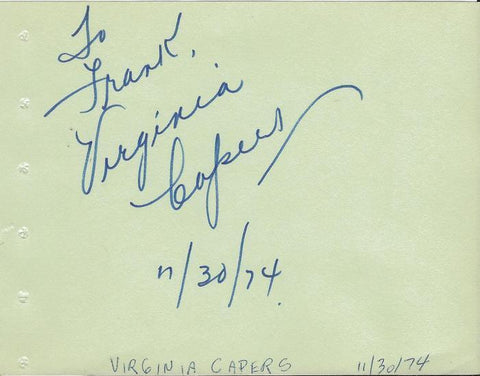 To
Frank,
Virginia
Capers
11/30/74
VIRGINIA CAPERS 11/30/74